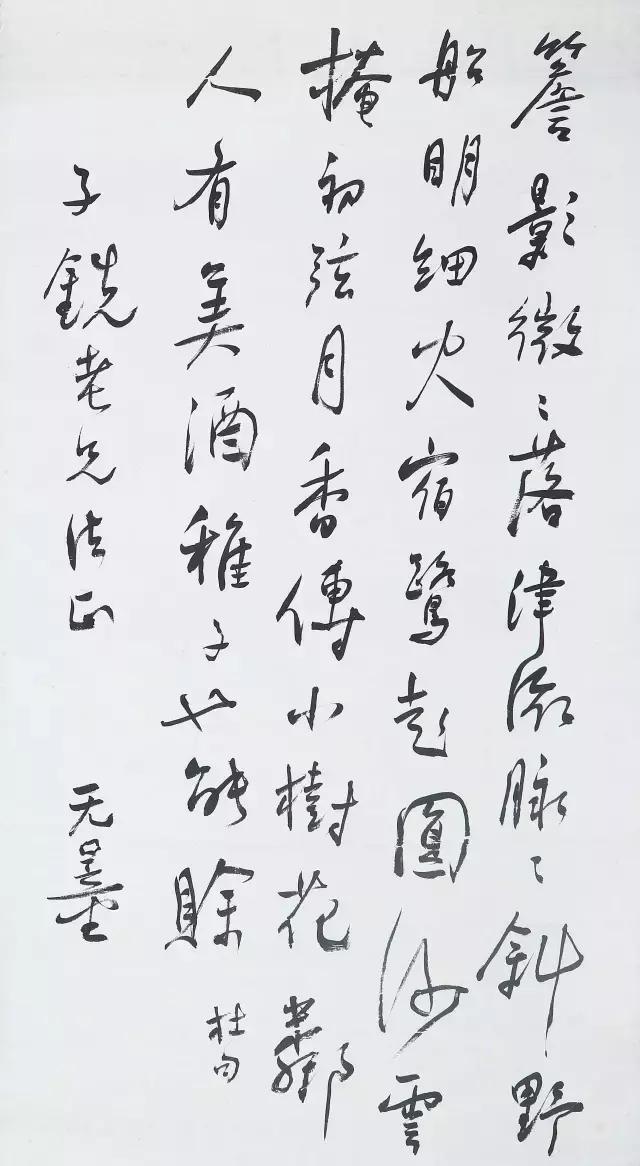 簷影微〻落津流脉〻斜野
船明細火宿鷺起圓沙雲
掩初弦月香傳小樹花鄰
人有美酒稚子也能賒 杜句
子銑老兄法正 无量